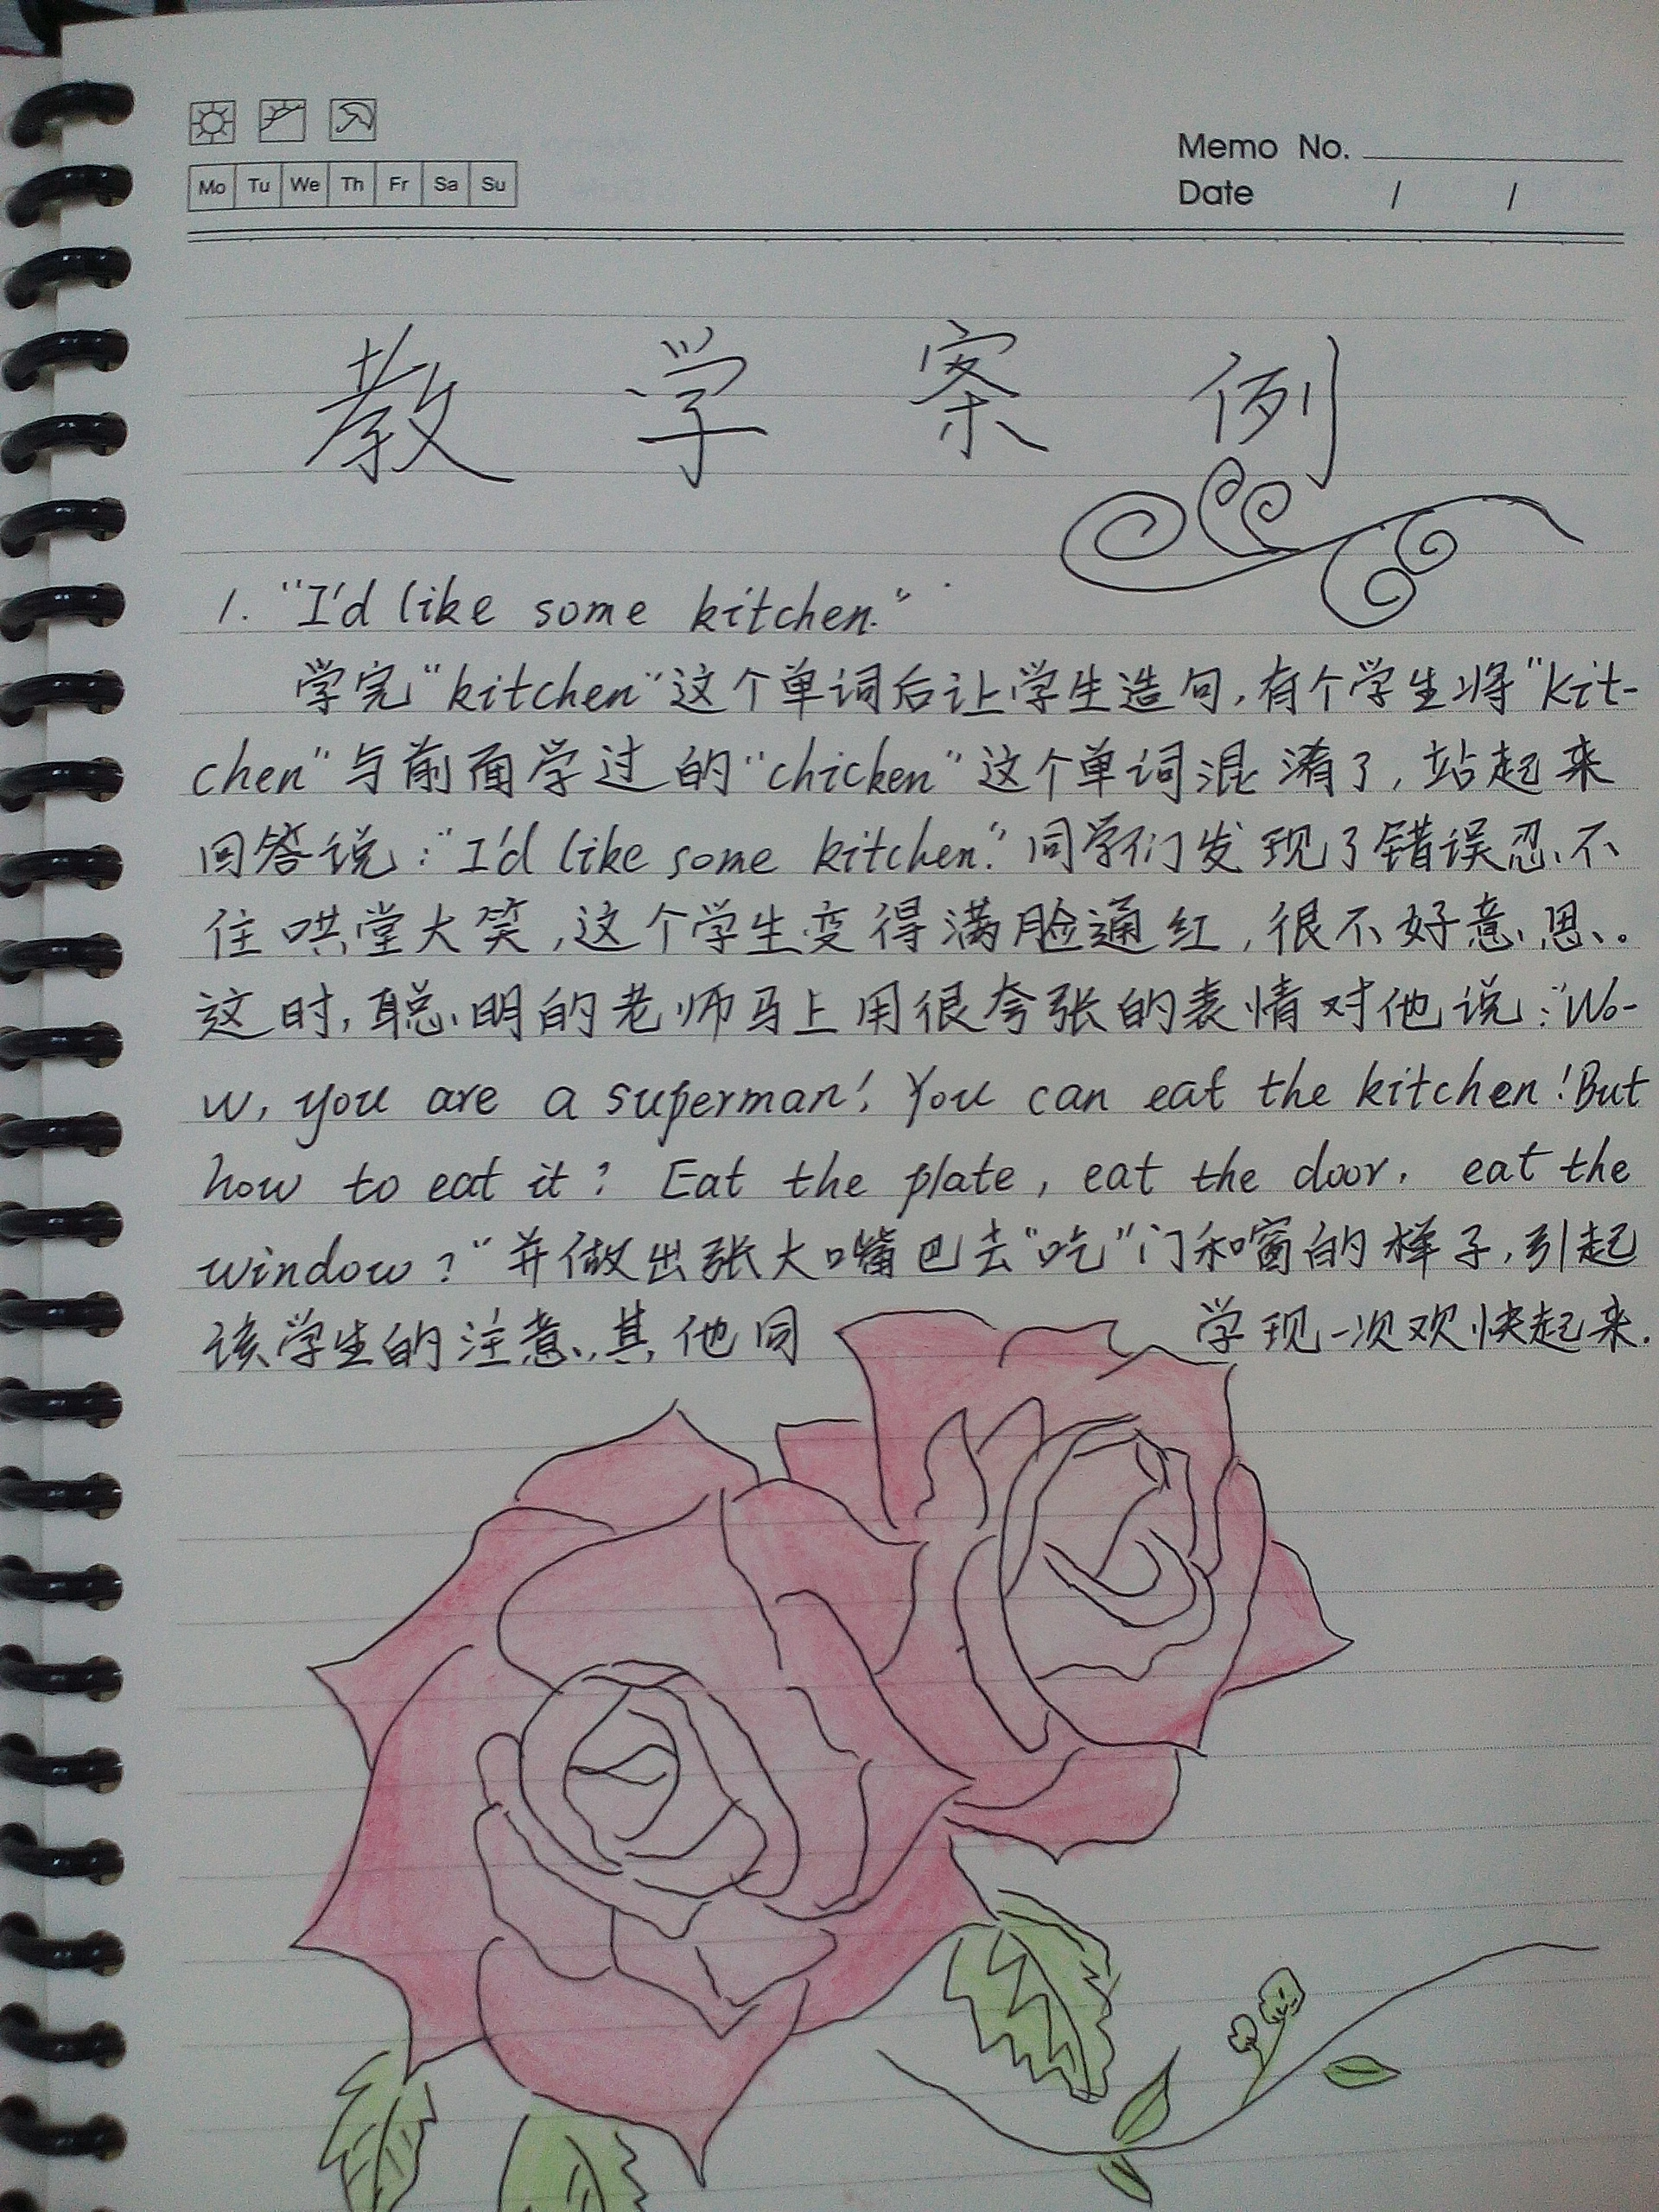 Memo No.
Mo Tu We Th Fr Sa Su
Date / /
教学案例
1. "I'd like some kitchen."
学完"kitchen"这个单词后让学生造句,有个学生将"kit-
chen"与前面学过的"chicken"这个单词混淆了,站起来
回答说:"I'd like some kitchen."同学们发现了错误忍不
住哄堂大笑,这个学生变得满脸通红,很不好意思。
这时,聪明的老师马上用很夸张的表情对他说:"Wo-
w, you are a superman! You can eat the kitchen! But
how to eat it? Eat the plate, eat the door, eat the
window?"并做出张大嘴巴去"吃"门和窗的样子,引起
该学生的注意,其他同学现一次欢快起来.